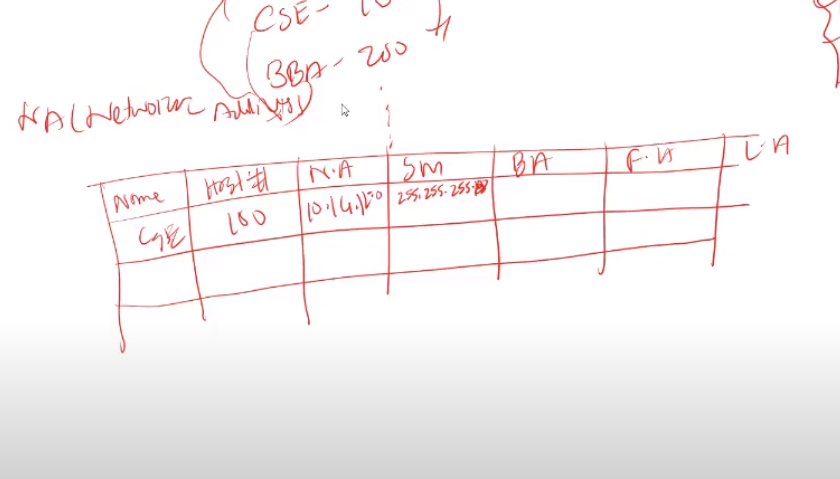 CSE - 10
BBA - 200
NA (Network Address)
Name Host # N.A SM BA F.A L.A
CSE 100 255.255.255.